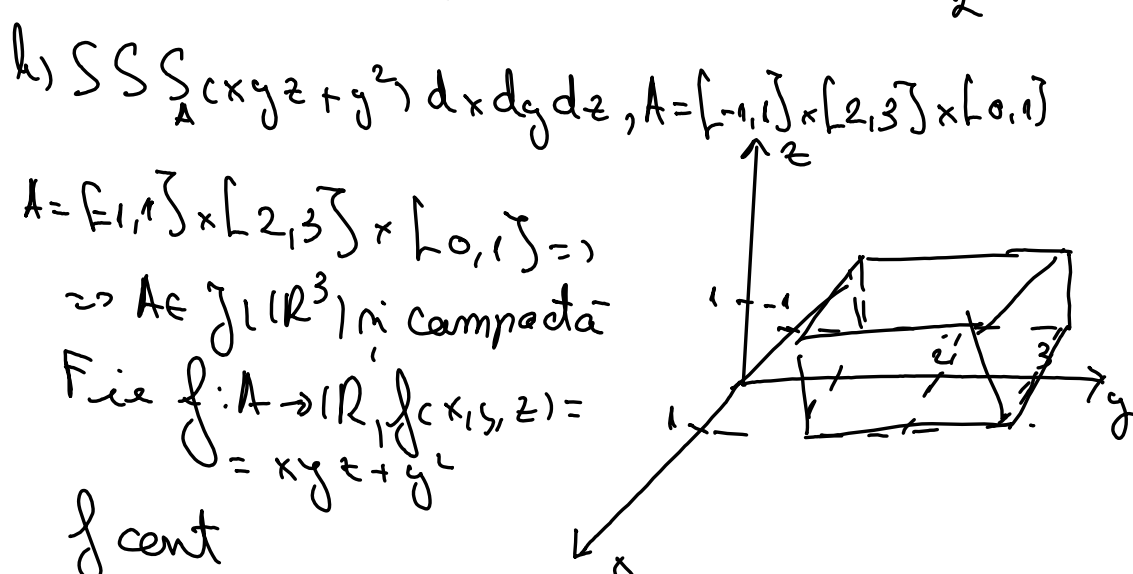 2
h) ∫∫∫_A (xyz + y²) dxdydz, A = [-1,1] × [2,3] × [0,1]
A = [-1,1] × [2,3] × [0,1] =>
=> A ∈ J(ℝ³) și compactă
Fie f : A → ℝ, f(x,y,z) =
= xyz + y²
f cont
z
1
-1
2
3
y
1
x